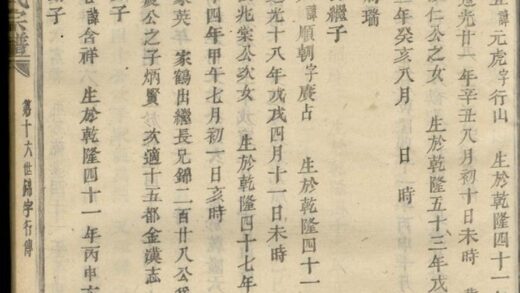 五 諱元虎字行山 生於乾隆四十一
道光廿一年辛丑八月初十日未時
仁公之女 生於乾隆五十三年戊
年癸亥八月 日 時
周瑞
繼子
諱順朝字廣占 生於乾隆四十一
道光十八年戊戌四月十一日未時
兆棠公次女 生於乾隆四十七年
十四年甲午七月初一日亥時
家英 家鶴出繼長兄錦二百廿八公
慶公之子炳賢 次適十五都金漢志
子
諱含祥 生於乾隆四十一年丙申
嗣子
第十六世錦字行傳
氏宗譜